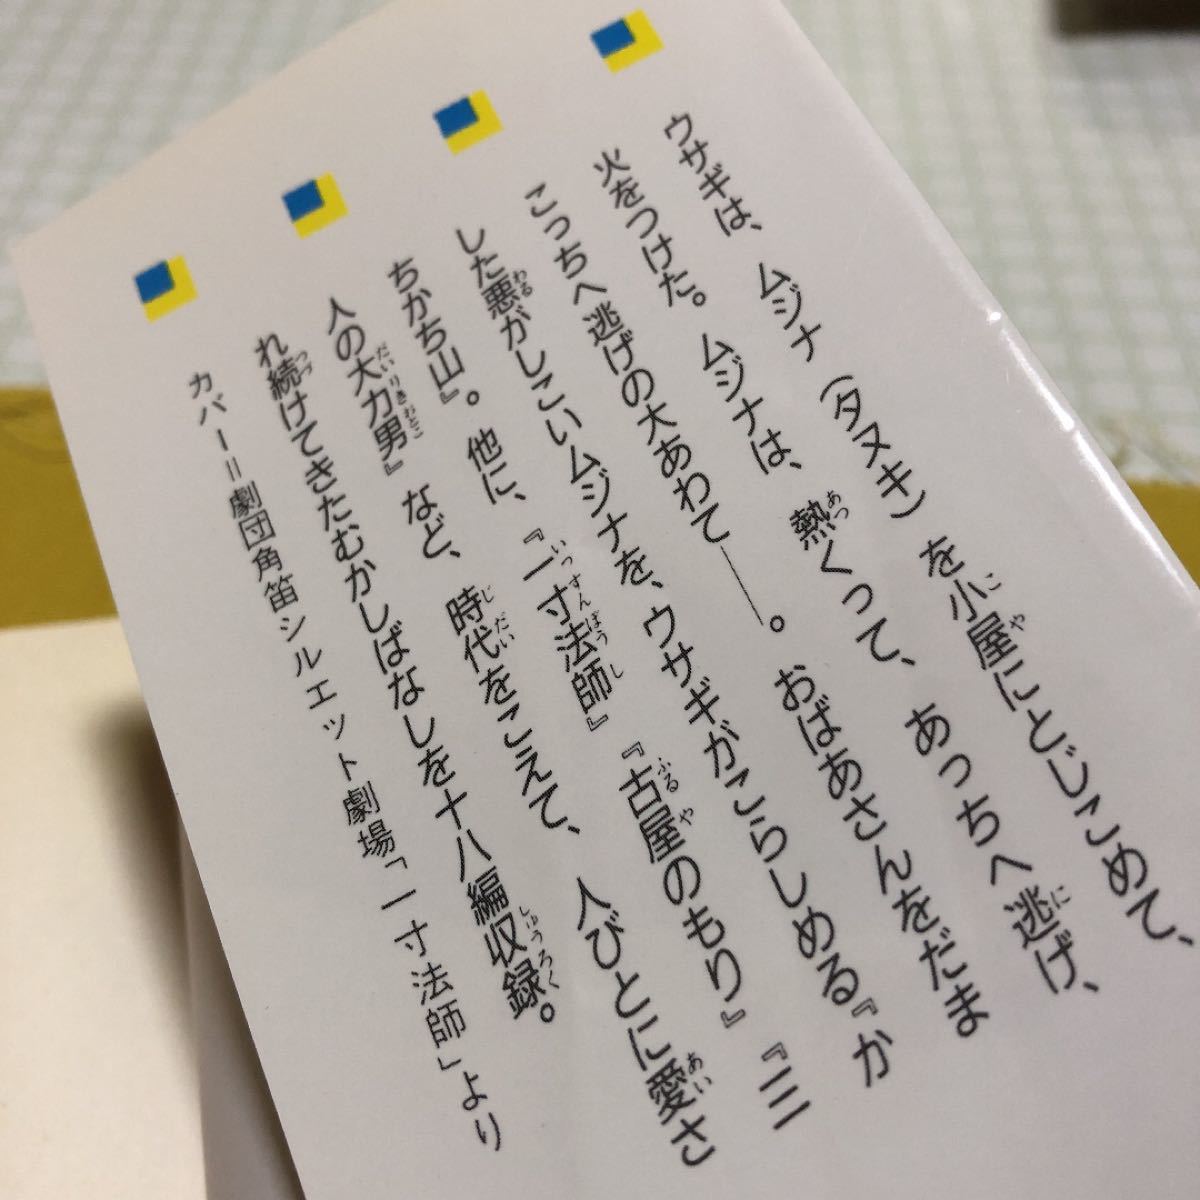 ウサギは、ムジナ(タヌキ)を小屋にとじこめて、
火をつけた。ムジナは、熱くって、あっちへ逃げ、
こっちへ逃げの大あわて――。おばあさんをだま
した悪がしこいムジナを、ウサギがこらしめる『か
ちかち山』。他に、『一寸法師』『古屋のもり』『三
人の大力男』など、時代をこえて、人びとに愛さ
れ続けてきたむかしばなしを十八編収録。
カバー=劇団角笛シルエット劇場「一寸法師」より